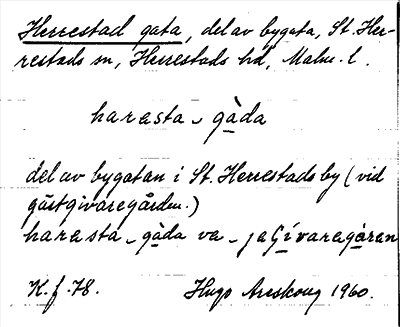 Herrestad gata, del av bygata, St. Her-
restads sn, Herrestads hd, Malm. l.
harasta - gàda
del av bygatan i St. Herrestads by (vid
gästgivaregården.)
harasta - gàda va - jaGívaregàren
K. f. 78. Hugo Areskoug 1960.